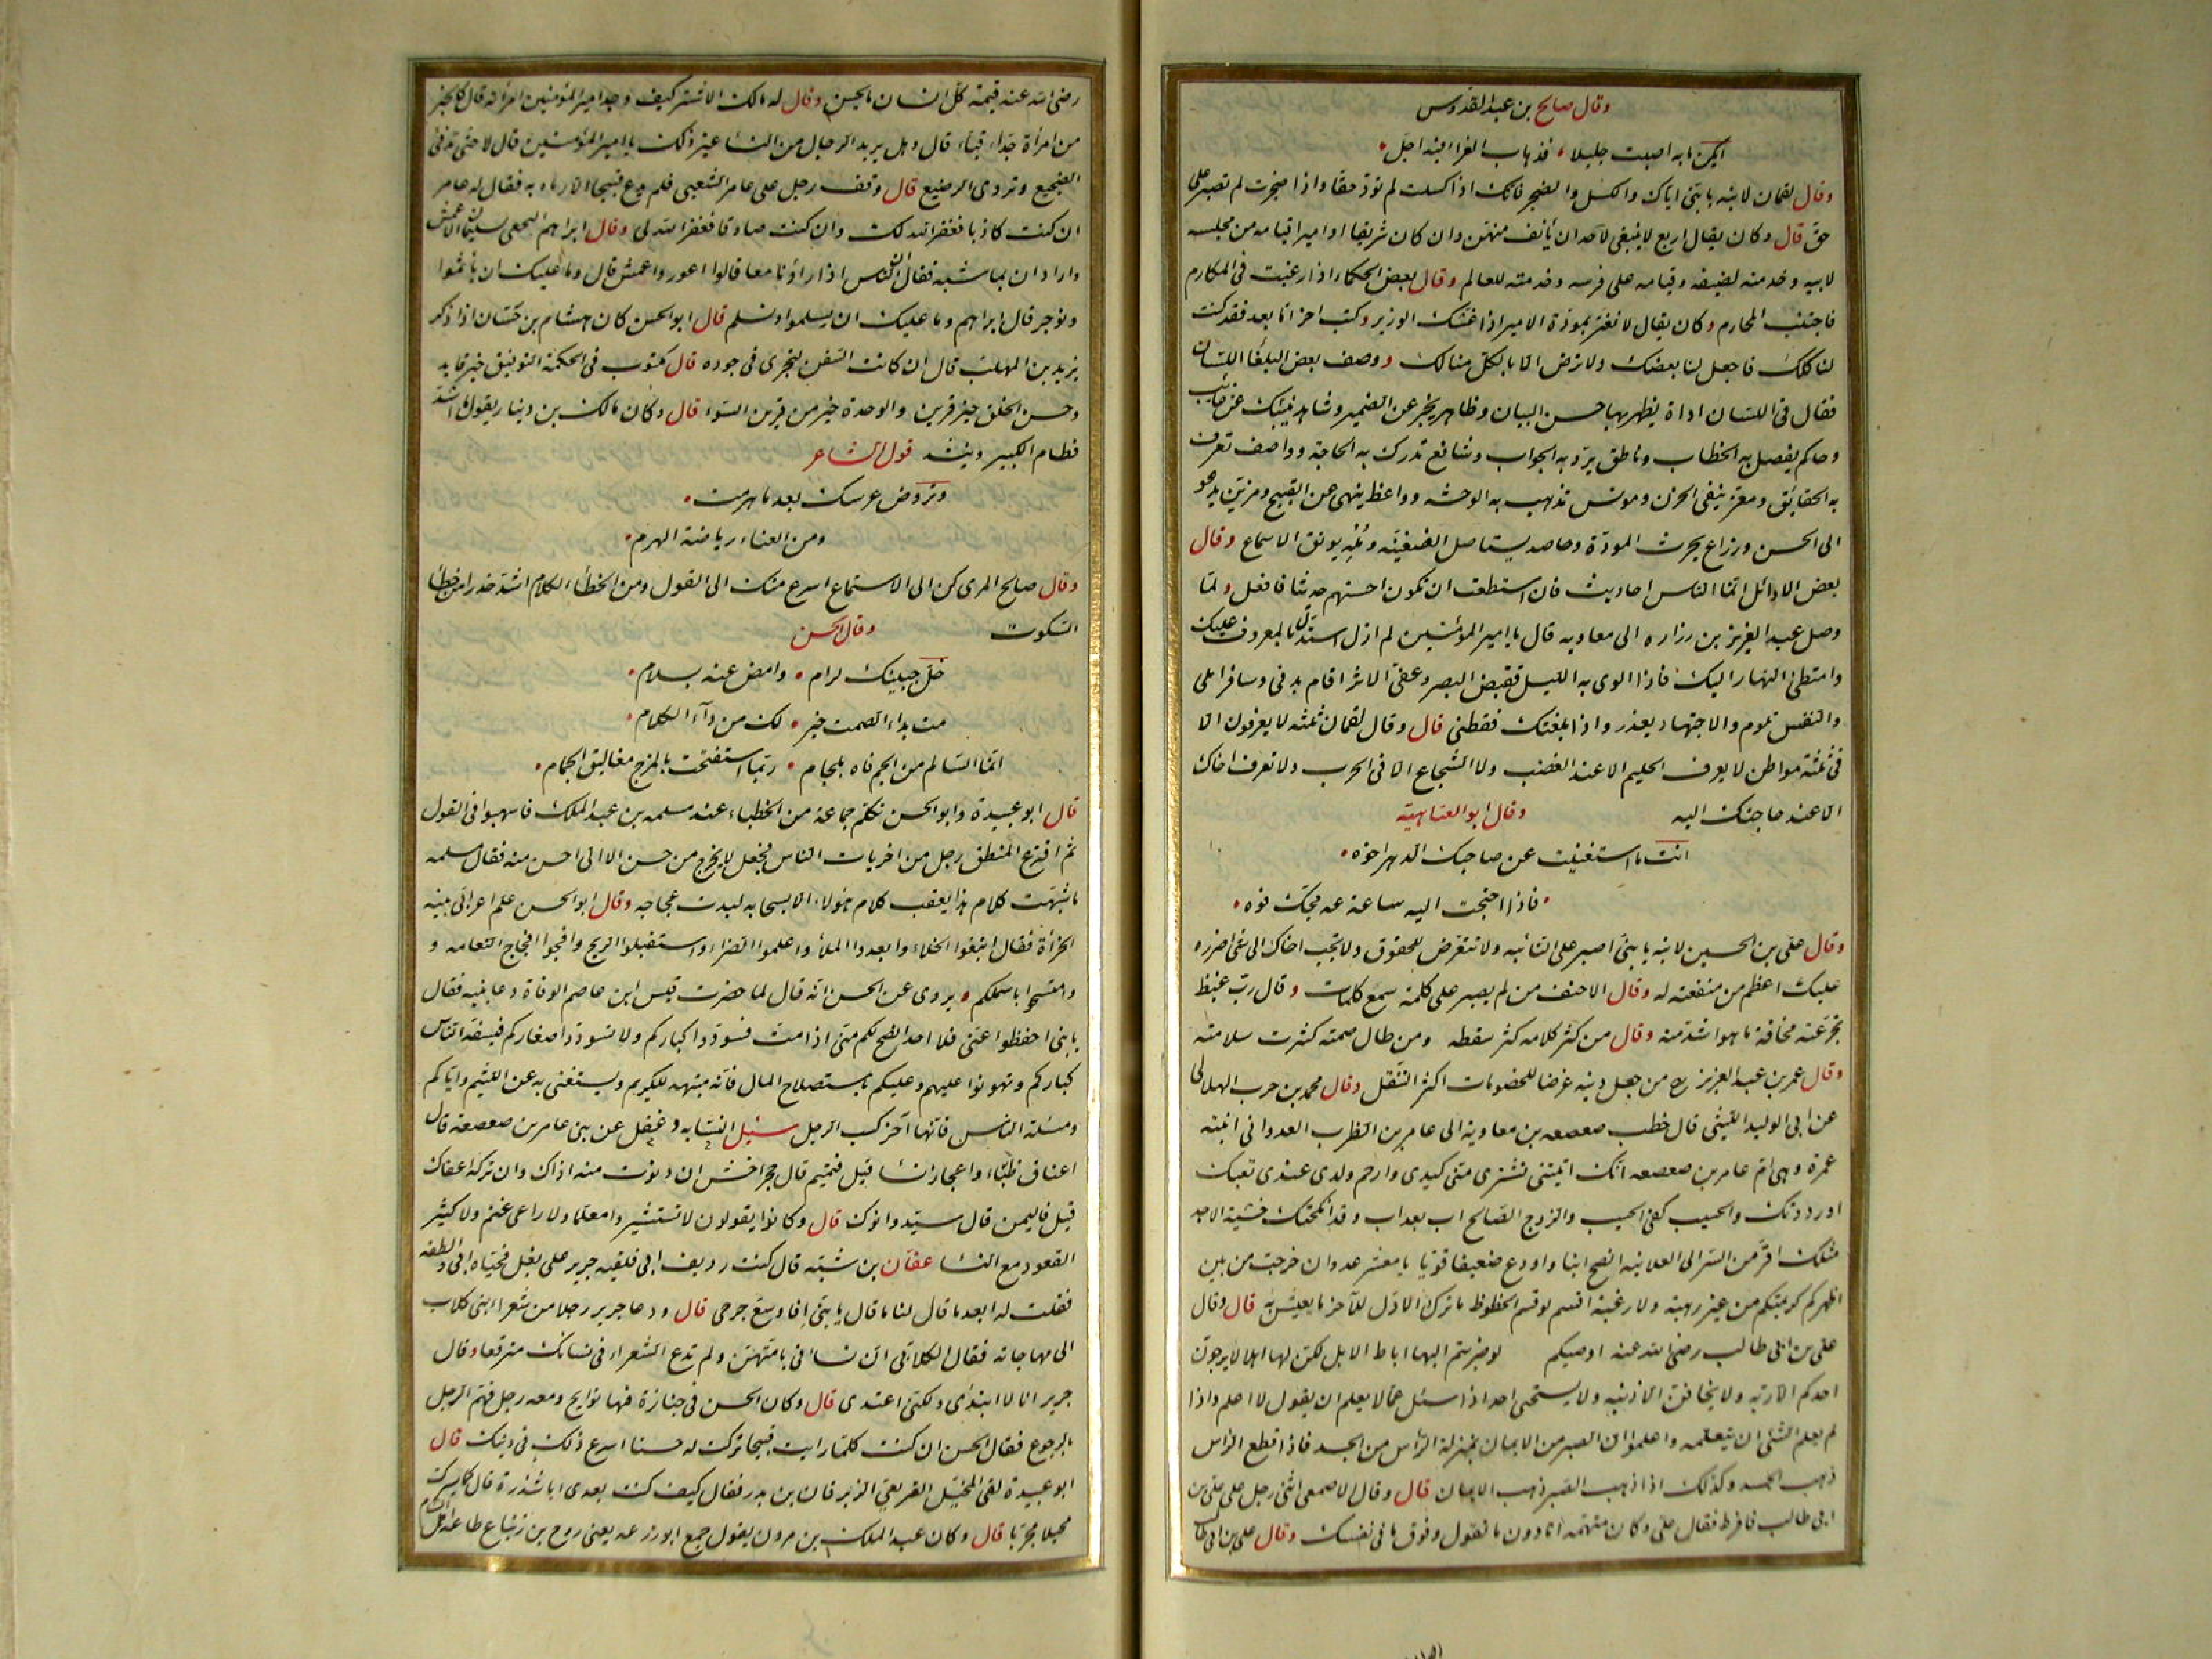 وقال صالح بن عبد القدوس
ان يكن ما به اصبت جليلا فذهاب العزا فيه اجل
وقال لقمان لابنه يا بنى اياك والكسل والضجر فانك اذا كسلت لم تؤد حقا واذا ضجرت لم تصبر على
حق قال وكان يقال اربع لا ينبغى لاحد ان يأنف منهن وان كان شريفا او اميرا قيامه من مجلسه
لابيه وخدمته لضيفه وقيامه على فرسه وخدمته للعالم وقال بعض الحكماء اذا رغبت فى المكارم
فاجتنب المحارم وكان يقال لا تغتر بمودة الامير اذا غشك الوزير وكتب اخر اما بعد فقد كنت
لنا كلك فاجعل لنا بعضك ولا ترض الا بالكل منا لك ووصف بعض البلغا اللسان
فقال فى اللسان اداة يظهر بها حسن البيان وظاهر يخبر عن الضمير وشاهد ينبئك عن غائب
وحاكم يفصل به الخطاب وناطق يرد به الجواب وشافع تدرك به الحاجة وواصف تعرف
به الحقايق ومعز ينفى الحزن ومونس تذهب به الوحشه وواعظ ينهى عن القبيح ومزين يدعو
الى الحسن وزراع يحرث المودة وحاصد يستاصل الضغينه ومله يونق الاسماع وقال
بعض الاوائل انما الناس احاديث فان استطعت ان تكون احسنهم حديثا فافعل ولما
وصل عبد العزيز بن زراره الى معاويه قال يا امير المؤمنين لم ازل استدل بالمعروف عليك
وامتطى النهار اليك فاذا الوى به الليل فقبض البصر وعفى الاثر اقام بدنى وسافر املى
والنفس تلوم والاجتهاد يعذر واذا بلغتك فقطنى قال وقال لقمان ثلثه لا يعرفون الا
فى ثلثة مواطن لا يعرف الحليم الا عند الغضب ولا الشجاع الا فى الحرب ولا تعرف اخاك
الا عند حاجتك اليه وقال ابو العتاهية
انت ما استغنيت عن صاحبك الدهر اخوه
فاذا احتجت اليه ساعة عه مجك فوه
وقال على بن الحسين لابنه يا بنى اصبر على النائبه ولا تتعرض للحقوق ولا تجب اخاك الى شئ ضرره
عليك اعظم من منفعته له وقال الاحنف من لم يصبر على كلمة سمع كلمات وقال رب غيظ
تجرعته مخافة ما هو اشد منه وقال من كثر كلامه كثر سقطه ومن طال صمته كثرت سلامته
وقال عمر بن عبد العزيز رح من جعل دينه غرضا للخصومات اكثر التنقل وقال محمد بن حرب الهلالى
عن ابى الوليد الليثى قال خطب صعصعه بن معاوية الى عامر بن الظرب العدوانى ابنته
عمرة وهى ام عامر بن صعصعه انك اتيتنى تشترى منى كبدى وارحم ولدى عندى تعبك
او رددتك والحسيب كفى الحسيب والزوج الصالح اب بعد اب وقد انكحتك خشية الا اجد
مثلك افر من السر الى العلانيه انصح ابنا واودع ضعيفا قويا يا معشر عدوان خرجت من بين
اظهركم كريمتكم من غير رهبة ولا رغبة اقسم لو قسم الحظوظ ما ترك الاول للآخر ما يعيش به قال وقال
على بن ابى طالب رضى الله عنه اوصيكم لو ضربتم اليها اباط الابل لكن لها اهلا لا يرجون
احدكم الا ربه ولا يخافن الا ذنبه ولا يستحى احد اذا سئل عما لا يعلم ان يقول لا اعلم واذا
لم يعلم الشئ ان يتعلمه واعلموا ان الصبر من الايمان بمنزلة الرأس من الجسد فاذا قطع الراس
ذهب الجسد وكذلك اذا ذهب الصبر ذهب الايمان قال وقال الاصمعى اثنى رجل على على بن
ابى طالب فافرط فقال على وكان متهمه انا دون ما تقول وفوق ما فى نفسك وقال على بن ابى طالب
رضى الله عنه قيمة كل انسان ما يحسن وقال له مالك الاشتر كيف وجد امير المؤمنين امرأته قال كالخير
من امرأة جداء قباء قال وهل يريد الرجال من النسا غير ذلك يا امير المؤمنين قال لا حتى تدفئ
الضجيع وتروى الرضيع قال وقف رجل على عامر الشعبى فلم يدع قبيحا الا رماه به فقال له عامر
ان كنت كاذبا فغفر الله لك وان كنت صادقا فغفر الله لى وقال ابراهيم النخعى لسليمان الاعمش
واراد ان يماشيه فقال ان الناس اذا راؤنا معا قالوا اعور واعمش قال وما عليك ان ياثموا
ونوجر قال ابراهيم وما عليك ان يسلموا ونسلم قال ابو الحسن كان هشام بن حسان اذا ذكر
يزيد بن المهلب قال ان كانت السفن لتجرى فى جوده قال مكتوب فى الحكمة التوفيق خير قايد
وحسن الخلق خير قرين والوحدة خير من قرين السوء قال وكان مالك بن دينار يقول ما اشد
فطام الكبير وينشد قول الشاعر
وتروض عرسك بعد ما هرمت
ومن العناء رياضة الهرم
وقال صالح المرى كن الى الاستماع اسرع منك الى القول ومن الخطاء الكلام اشد حذرا من خطأ
السكوت وقال الحسن
خل جبينك لرام وامض عنه بسلام
مت بداء الصمت خير لك من دآء الكلام
انما السالم من الجم فاه بلجام ربما استفتحت بالمزح مغاليق الحمام
قال ابو عبيدة وابو الحسن تكلم جماعة من الخطباء عند مسلمه بن عبد الملك فاسهبوا فى القول
ثم اقترع المنطق رجل من اخريات الناس فجعل لا يخرج من حسن الا الى احسن منه فقال مسلمه
ما شبهت كلام هذا بعقب كلام هؤلاء الا بسحابه لبدت عجاجه وقال ابو الحسن علم اعرابى بنيه
الخرأة فقال ابتغوا الخلاء وابعدوا الملأ واعلموا الضراء واستقبلوا الريح وافجوا افجاج النعامه و
وامتسحوا باشملكم ويروى عن الحسن انه قال لما حضرت قيس ابن عاصم الوفاة دعا بنيه فقال
يا بنى احفظوا عنى فلا احد انصح لكم منى اذا مت فسودوا كباركم ولا تسودوا صغاركم فيسفه الناس
كباركم وتهونوا عليهم وعليكم باستصلاح المال فانه منبهه للكريم ويستغنى به عن اللئيم واياكم
ومسئلة الناس فانها آخر كسب الرجل سئل النسابه دغفل عن بنى عامر بن صعصعه قال
اعناق ظباء واعجاز نسا قيل فتميم قال حجر اخشن ان دنوت منه اذاك وان تركه اعفاك
قيل فاليمن قال سيد وانوك قال وكانوا يقولون لا تستشيروا معلما ولا راعى غنم ولا كثير
القعود مع النسا عفان بن شبه قال كنت رديف ابى فلقيه جرير على بغل فحياه ابى والطفه
فقلت له ابعد ما قال لنا ما قال يا بنى افاوسع جرحى قال ودعا جرير رجلا من شعراء بنى كلاب
الى مهاجاته فقال الكلابى ان نسائى بامتهن ولم تدع الشعراء فى نسائك مترقعا وقال
جرير انا لا ابتدى ولكنى اعتدى قال وكان الحسن فى جنازة فيها نوايح ومعه رجل فهم الرجل
بالرجوع فقال الحسن ان كنت كلما رايت قبيحا تركت له حسنا اسرع ذلك فى دينك قال
ابو عبيدة لقى المخبل القريعى الزبرقان بن بدر فقال كيف كنت بعدى ابا شذرة قال كما يسرك
محيلا مجربا قال وكان عبد الملك بن مرون يقول جمع ابو زرعه يعنى روح بن زنباع طاعة اهل الشام